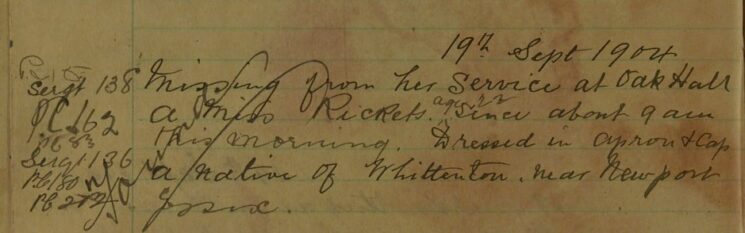 19th Sept 1904
Sergt 138 Missing from her Service at Oak Hall
PC 162 a Miss Rickets. age 22 Since about 9 am
PC 63 this morning. Dressed in apron & Cap
Sergt 136 a native of Whittenton. near Newport
PC 180
PC 272 Essex.